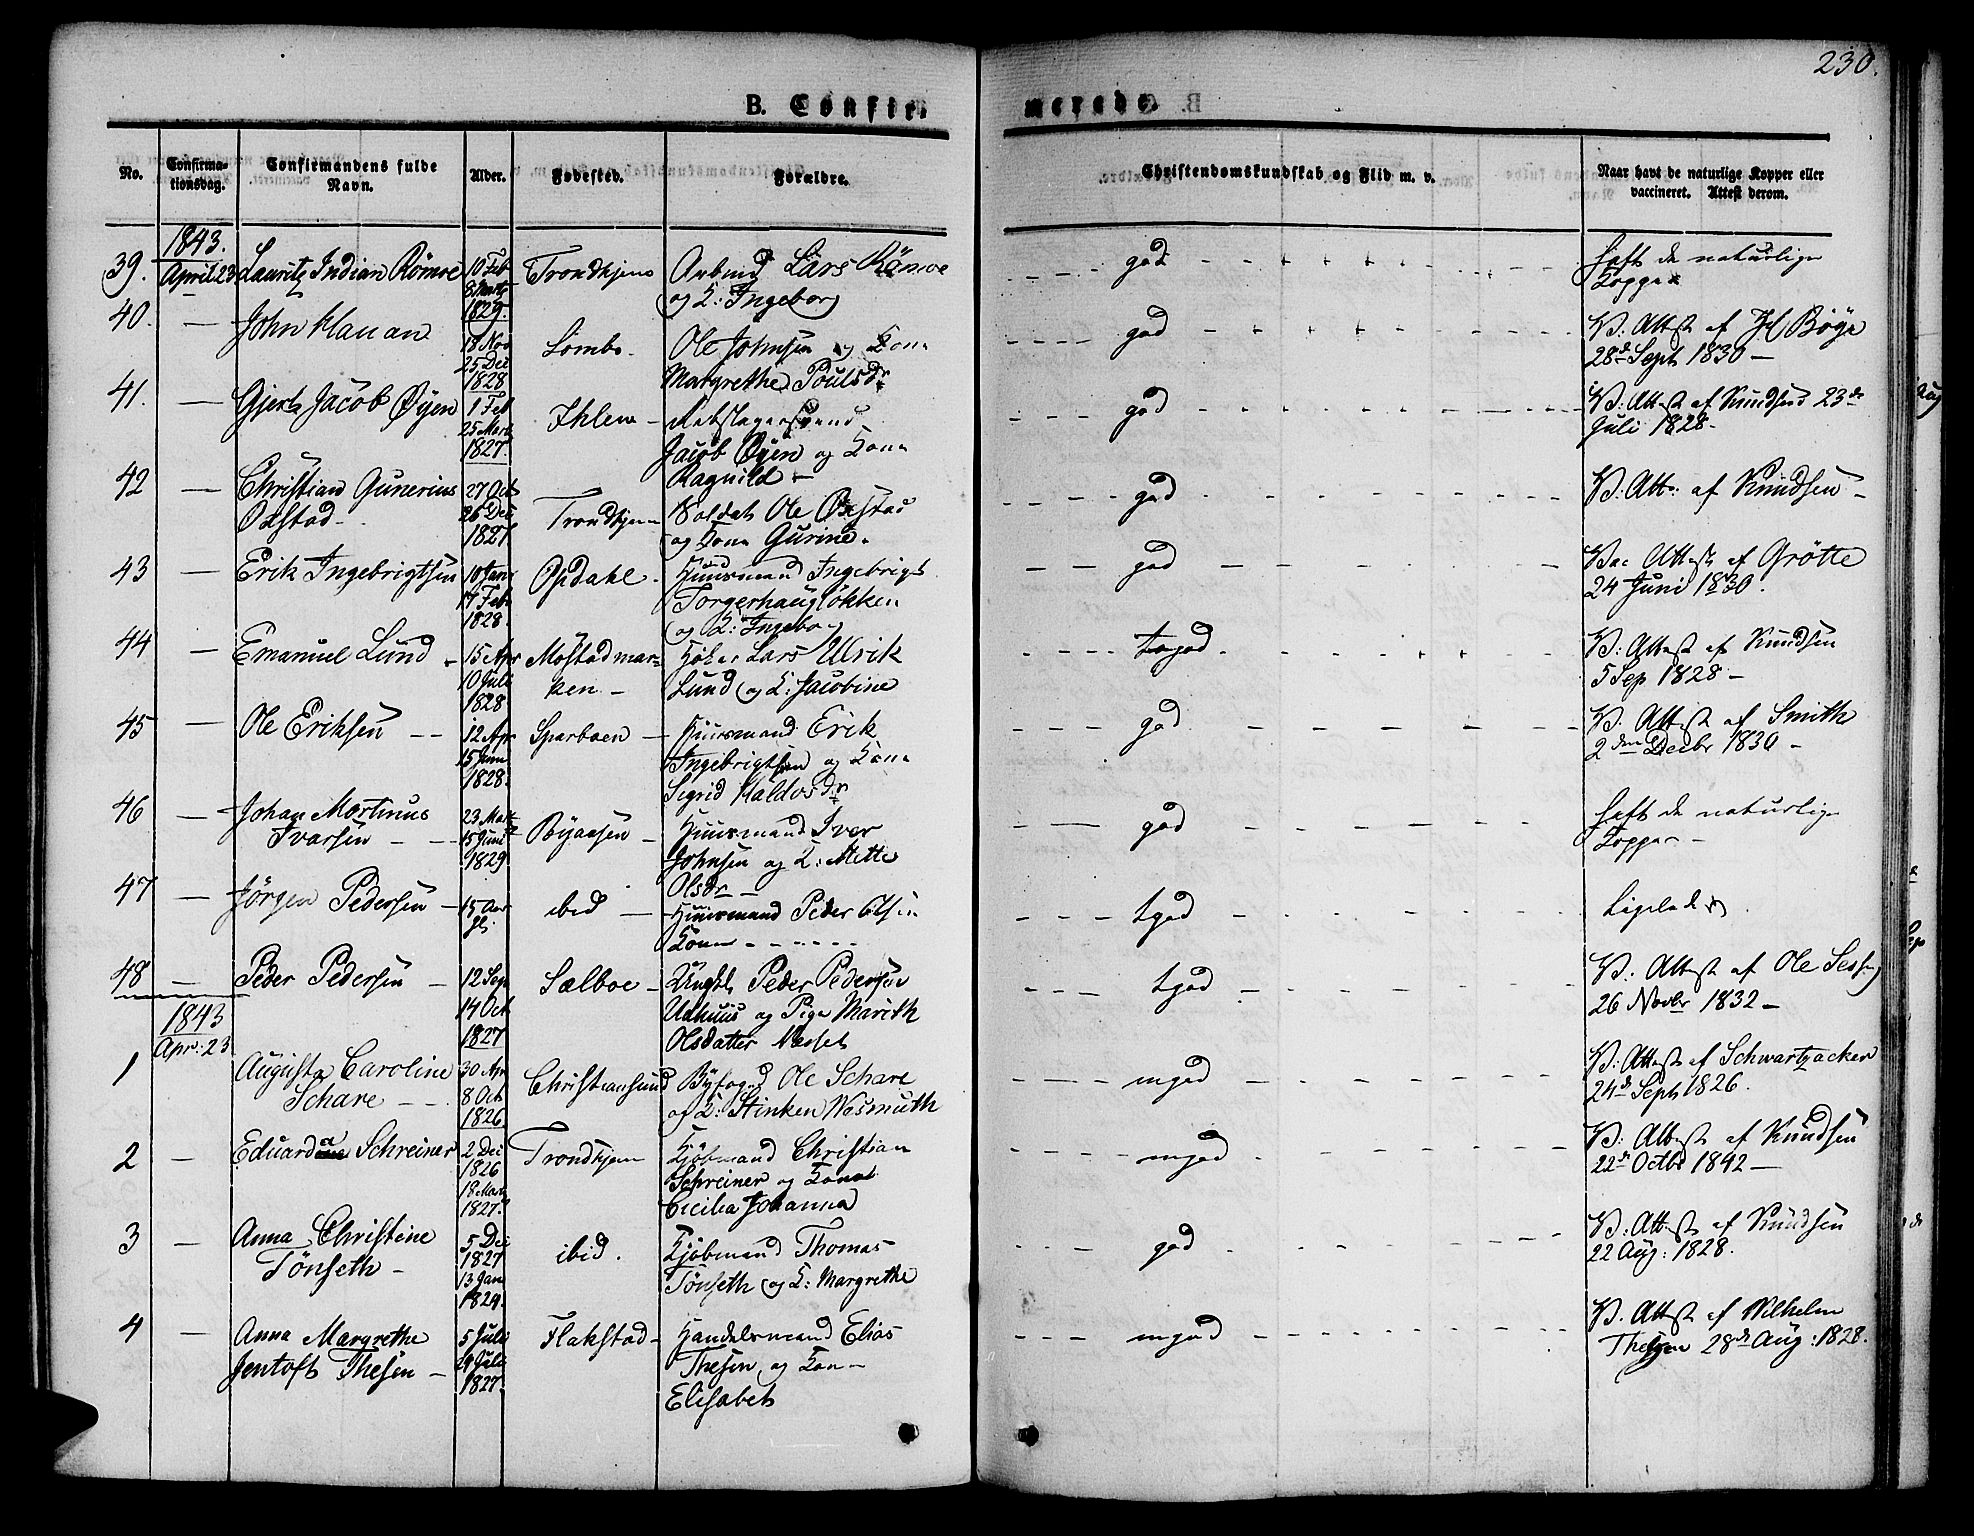 230.
B. Confir-
merede.
No.
Confirma-
tionsdag.
Confirmandens fulde
Navn.
Alder.
Fødested.
Forældre.
Christendomskundskab og Flid m. v.
Naar havt de naturlige Kopper eller
vaccineret. Attest derom.
1843.
39. April 23 Lauritz Indian Römoe 10 Feb 8 Marts 1829. Trondhjem Lars Römoe
og K: Ingeborg
god
haft de naturlige
Kopper
40. — John Klauan 18 Nov 25 Dec 1828 Ole Johnsen og Kone
Margrethe Poulsdr
god
V. Attest af Böye
28de Sept 1830 —
41. — Gjert Jacob Öyen 1 Feb 25 Marts 1827. Ihlen — Rebslagersvend
Jacob Öyen og Kone
Ragnild —
god
V: Attest af Knudsen 23de
Juli 1828.
42 — Christian Gunerius
Oxstad 27 Oct 26 Dec 1827. Trondhjem Soldat Ole Oxstad
og Kone Gurine.
god
V: Att: af Knudsen —
43 — Erik Ingebrigtsen 10 Jan 17 Feb 1828. Opdahl. Huusmand Ingebrigt
Torgerhaugløkken
og K: Ingebor
god
Vac Attest af Grötte
24 Juni 1830.
44 — Emanuel Lund 15 Apr 10 Juli 1828 Mostadmar-
ken — Lars Ulrik
Lund og K: Jacobine
tgod.
V: Attest af Knudsen
5 Sep 1828 —
45 — Ole Eriksen 12 Apr 15 Juni 1828. Sparboen — Huusmand Erik
Ingebrigtsen og Kone
Sigrid Haldvsdr
god
V. Attest af Smith
2den Decbr 1830 —
46 — Johan Martinus
Ivarsen 23 Mar 15 Juni 1829 Byaasen — Huusmand Iver
Johnsen og K: Mette
Olsdr —
god
haft de naturlige
Kopper —
47 — Jörgen Pedersen — 15 Aar gl. ibid — Huusmand Peder Olsen
Kone
tgod
Ligeledes
48 — Peder Pedersen — 12 Sep 14 Oct 1827 Sælboe — Ungkl Peder Pedersen
Udhuus og Pige Marith
Olsdatter Næsset
tgod
V. Attest af Ole
26 Novbr 1832 —
1843
Apr: 23
1 Augusta Caroline
Schare 30 Apr 8 Oct 1826 Christiansund Byfoged Ole Schare
og K: Stinken Wesmuth
mgod
V: Attest af Schwartzacker
24de Sept 1826.
2 — Eduarda Schreiner 2 Dec 1826 18 Marts 1827. Trondhjem Kjöbmand Christian
Schreiner og Kone
Cicilia Johanna
mgod
V: Attest af Knudsen
22de Octbr 1842 —
3 — Anna Christine
Tönseth — 5 Dec 1827 13 Jan 1829. ibid. Kjöbmand Thomas
Tönseth og K: Margrethe
god
V: Attest af Knudsen
22 Aug: 1828.
4 — Anna Margrethe
Jentoft Thesen — 5 Juli 29 Juli 1827. Flakstad — Handelsmand Elias
Thesen og Kone
Elisabet
mgod
V. Attest af Wilhelm
28de Aug: 1828.